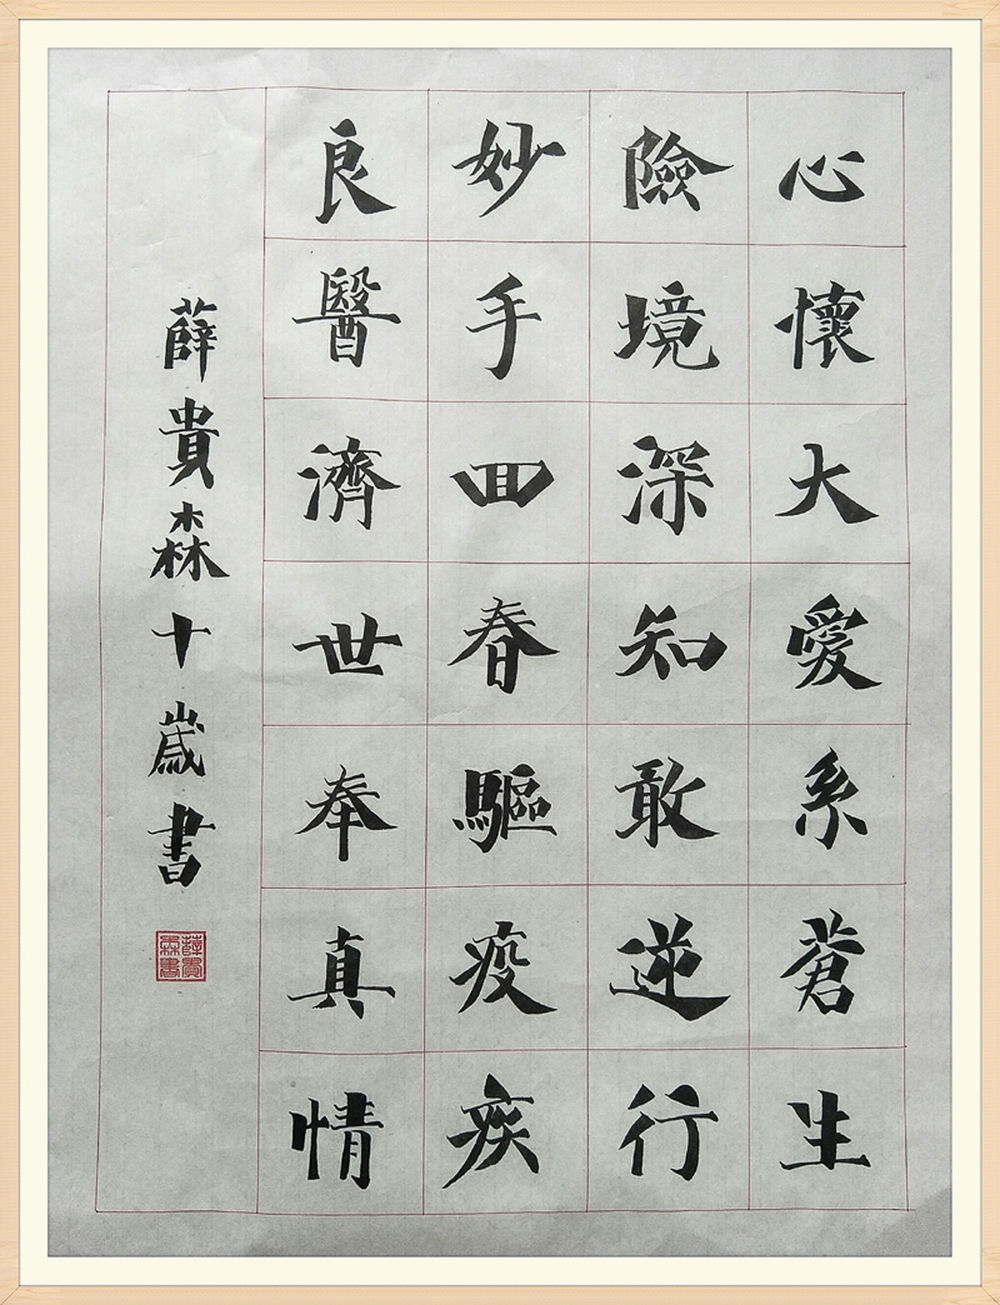 心懷大愛系蒼生
險境深知敢逆行
妙手回春驅疫疾
良醫濟世奉真情
薛貴森十歲書
薛貴
森書